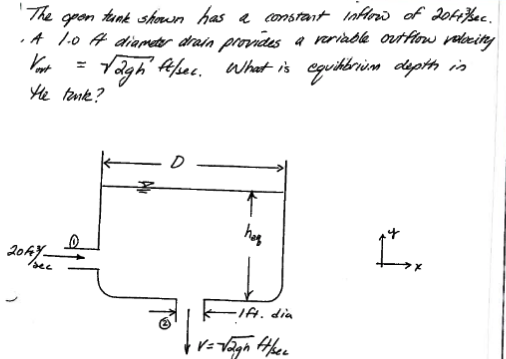 The open tank shown has a constant inflow of 20 ft³/sec.
A 1.0 ft diameter drain provides a variable outflow velocity
Vout = √2gh ft/sec. What is equilibrium depth in
the tank?
D
heq
y
x
①
20 ft³/sec
1 ft. dia
②
V = √2gh ft/sec